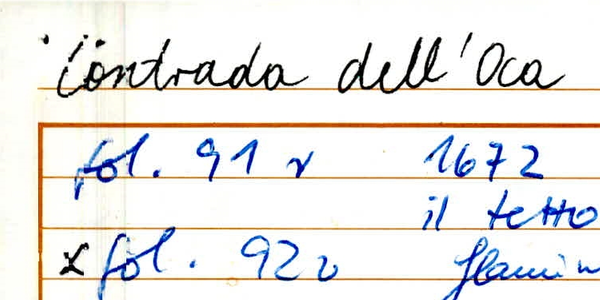 Contrada dell'Oca
fol. 91 r 1672
il tetto
x fol. 92 v